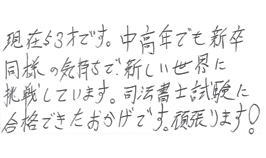 現在53才です。中高年でも新卒
同様の気持ちで、新しい世界に
挑戦しています。司法書士試験に
合格できたおかげです。頑張ります!